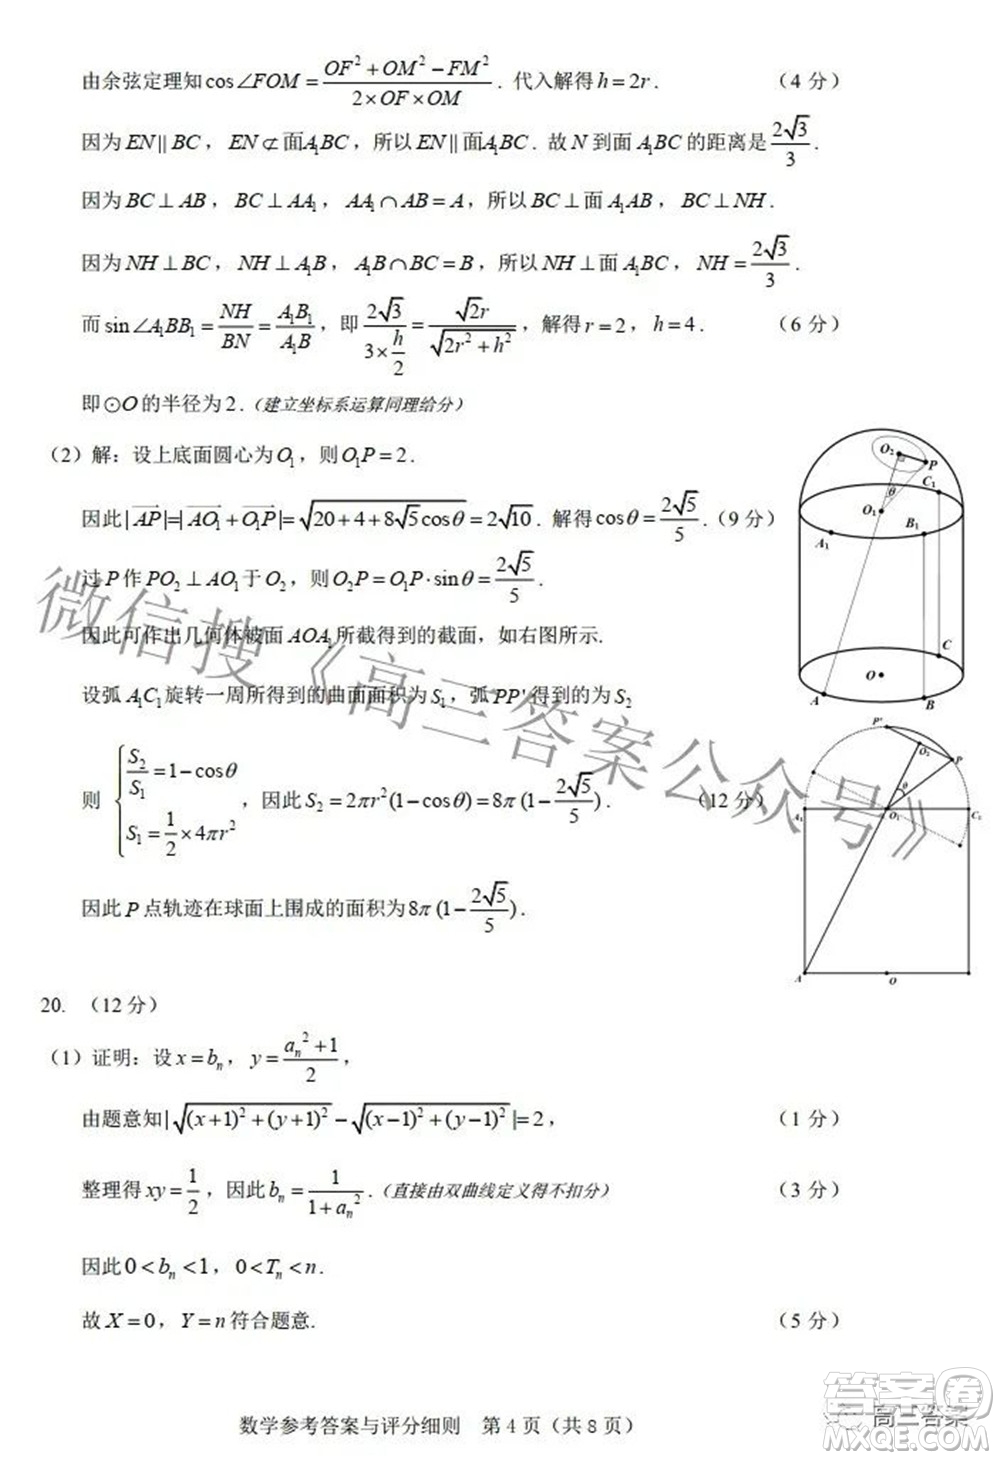 由余弦定理知 cos∠FOM = (OF² + OM² − FM²) / (2×OF×OM) . 代入解得 h = 2r . （4 分）
因为 EN∥BC，EN⊄面A₁BC，所以 EN∥面A₁BC . 故 N 到面 A₁BC 的距离是 2√3/3 .
因为 BC⊥AB，BC⊥AA₁，AA₁∩AB=A，所以 BC⊥面 A₁AB，BC⊥NH .
因为 NH⊥BC，NH⊥A₁B，A₁B∩BC=B，所以 NH⊥面 A₁BC，NH = 2√3/3 .
而 sin∠A₁BB₁ = NH/BN = A₁B₁/A₁B，即 (2√3)/(3×h/2) = √2r/√(2r²+h²)，解得 r=2，h=4 . （6 分）
即⊙O的半径为 2 .（建立坐标系运算同理给分）
（2）解：设上底面圆心为O₁，则O₁P=2 .
因此|AP→|=|AO₁→+O₁P→|=√(20+4+8√5cosθ)=2√10 . 解得 cosθ=2√5/5 .（9 分）
过 P 作 PO₂⊥AO₁于O₂，则O₂P=O₁P·sinθ=2√5/5 .
因此可作出几何体被面 AOA₁所截得到的截面，如右图所示.
设弧 A₁C₁旋转一周所得到的曲面面积为S₁，弧PP'得到的为S₂
则 { S₂/S₁=1−cosθ
S₁=1/2×4πr² ，因此 S₂=2πr²(1−cosθ)=8π(1−2√5/5) . （12 分）
因此 P 点轨迹在球面上围成的面积为 8π(1−2√5/5) .
O₂ P C₁ θ O₁ B₁ A₁ C O A B
P' O₂ P θ A₁ O₁ C₁ A O
20. （12 分）
（1）证明：设 x=bₙ，y=(aₙ²+1)/2，
由题意知|√((x+1)²+(y+1)²)−√((x−1)²+(y−1)²)|=2， （1 分）
整理得 xy=1/2，因此 bₙ=1/(1+aₙ²) .（直接由双曲线定义得不扣分） （3 分）
因此 0<bₙ<1，0<Tₙ<n .
故 X=0，Y=n 符合题意. （5 分）
数学参考答案与评分细则 第 4 页（共 8 页）
微信搜《高三答案公众号》
高三答案
答案圈